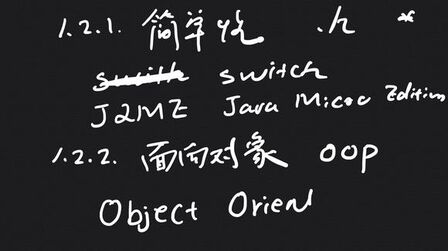 1.2.1. 简单性 .h *
switch switch
J2ME Java Micro Edition
1.2.2. 面向对象 OOP
Object Orien